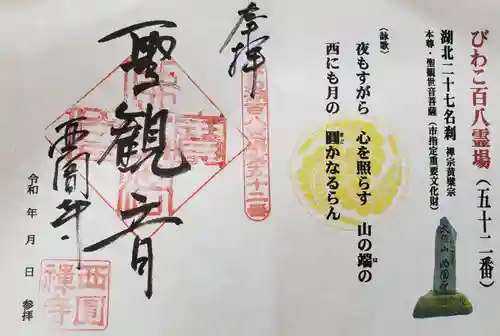 びわこ百八霊場(五十二番)
湖北二十七名刹 禅宗黄檗宗
本尊・聖観世音菩薩(市指定重要文化財)
〈詠歌〉
夜もすがら 心を照らす 山の端の
は
西にも月の 圓かなるらん
まど
奉拝
聖観音
西圓寺
令和 年 月 日 参拝
西圓禅寺